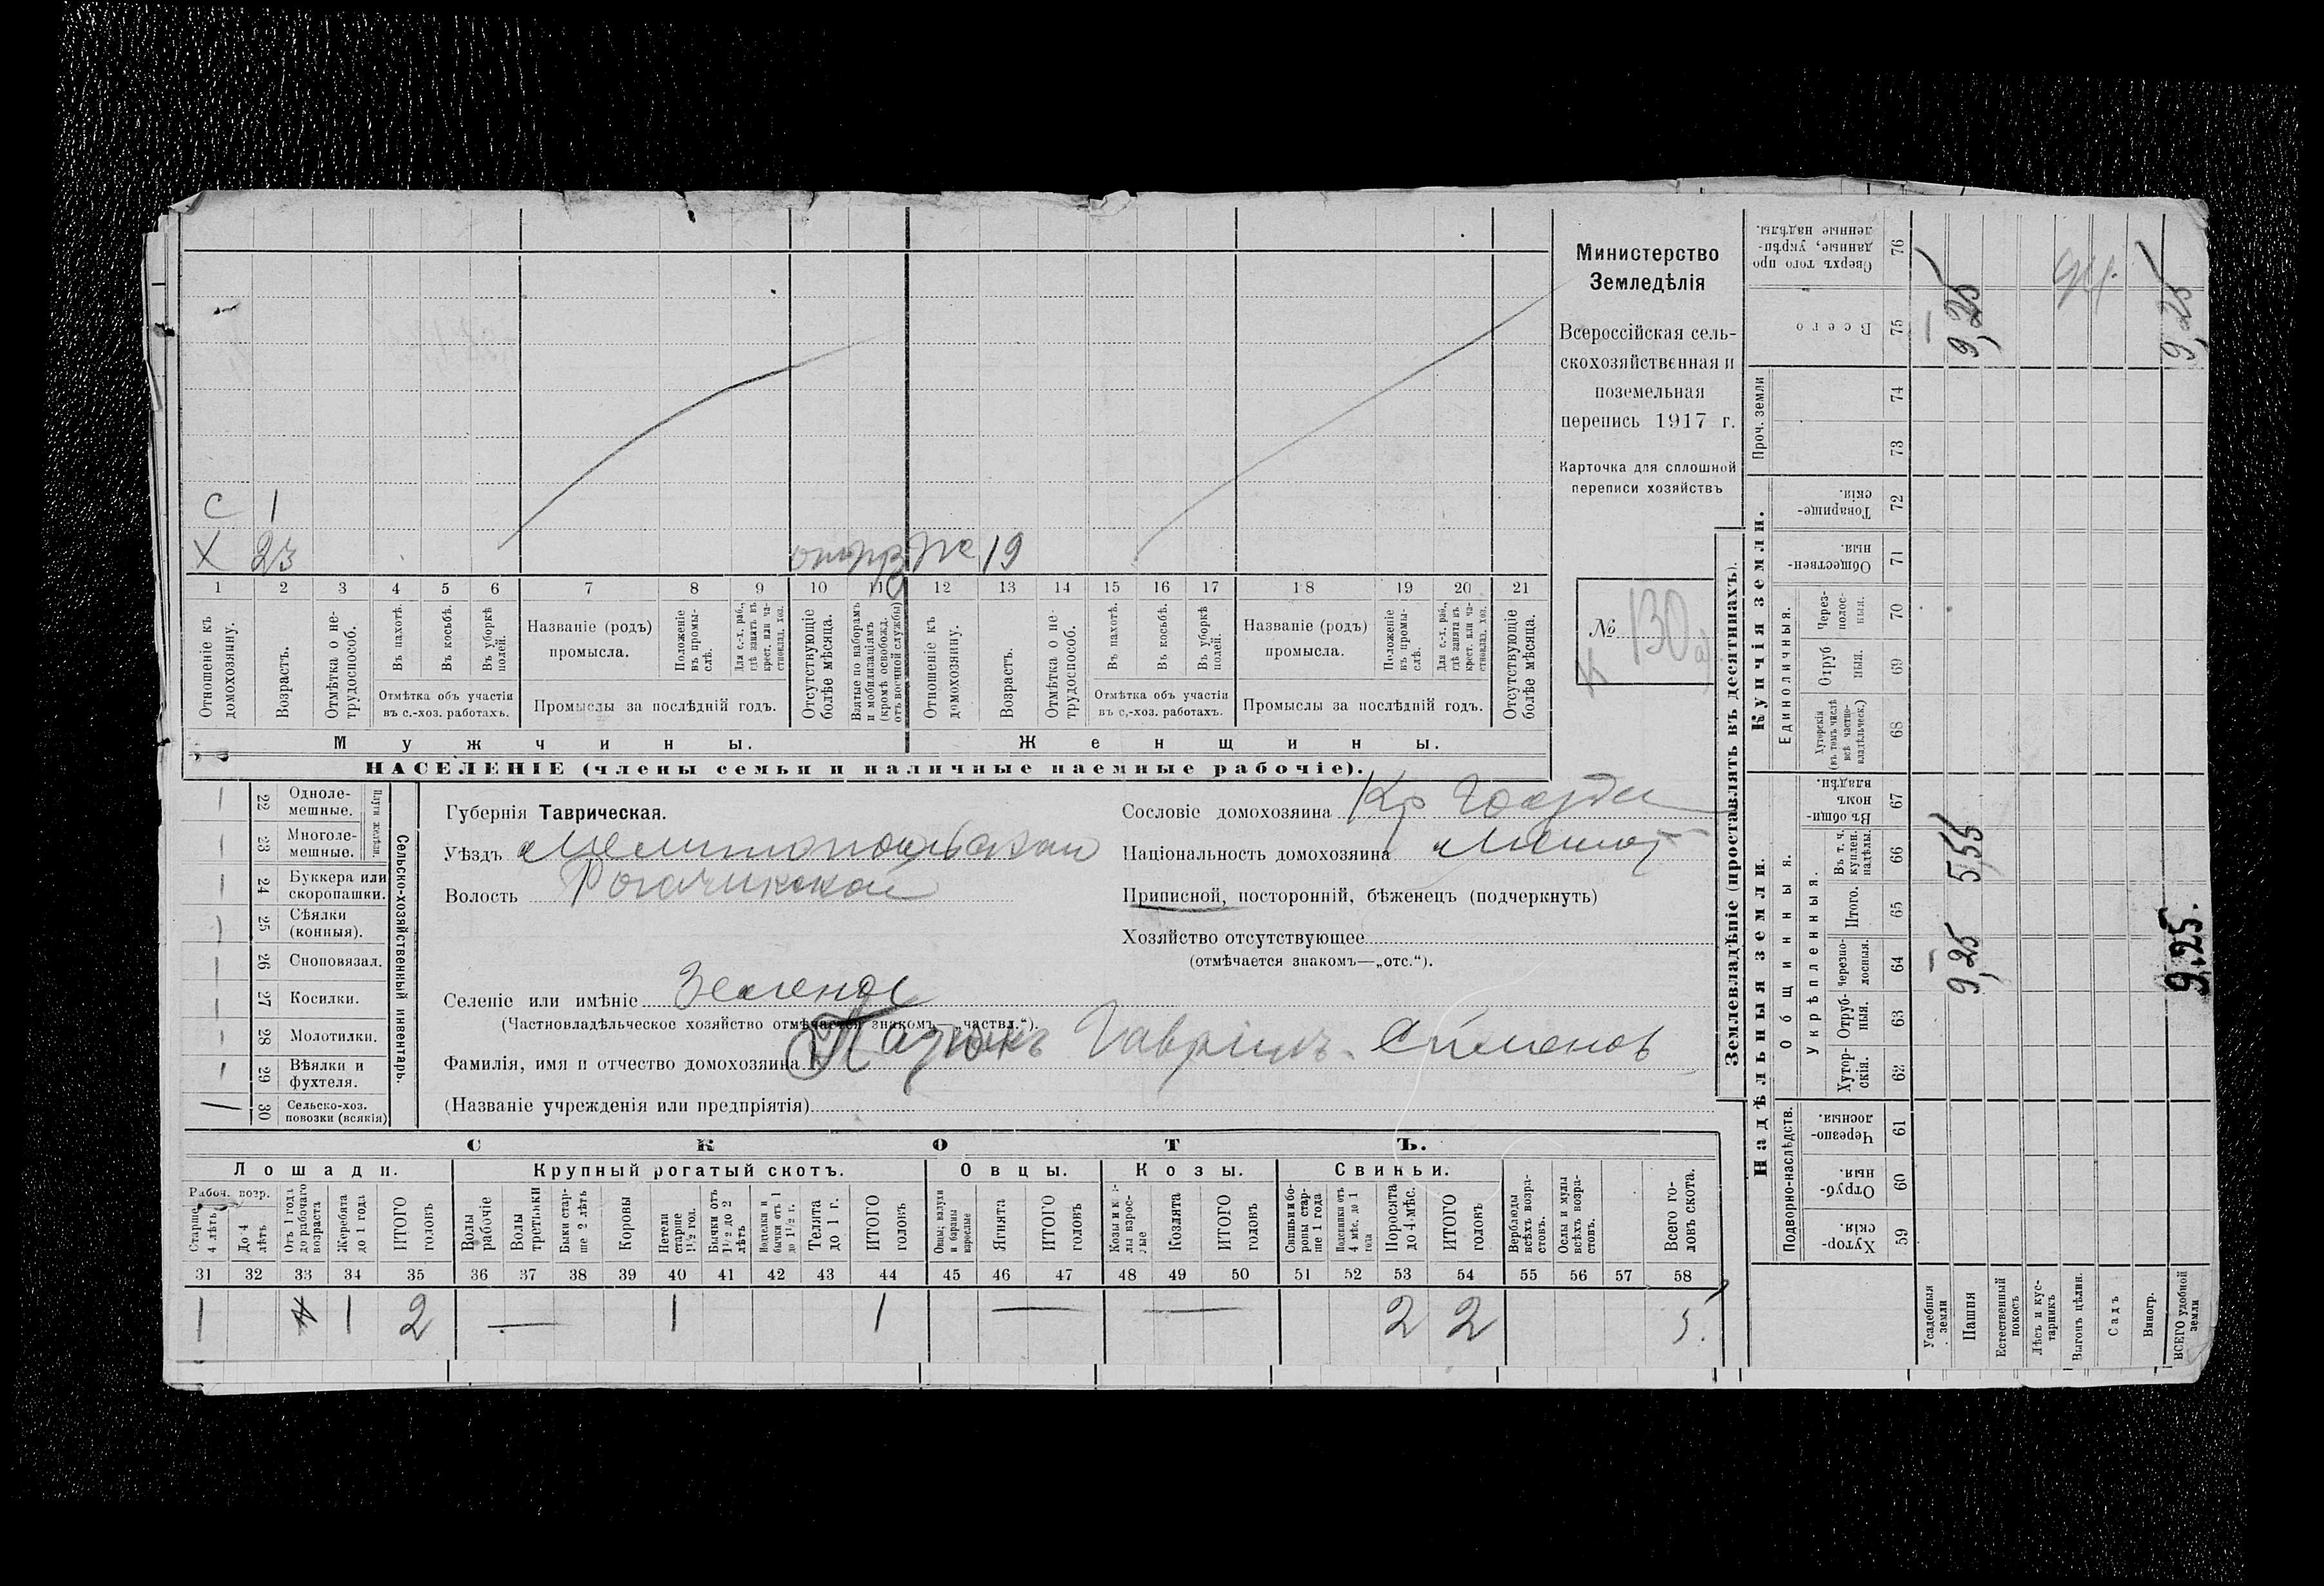 Министерство
Земледѣлія
Всероссійская сель-
скохозяйственная и
поземельная
перепись 1917 г.
Карточка для сплошной
переписи хозяйствъ
№ 130
С 1
Х 23
19
1 2 3 4 5 6 7 8 9 10 11 12 13 14 15 16 17 18 19 20 21
Отношеніе къ домохозяину.
Возрастъ.
Отмѣтка о не-трудоспособ.
Въ пахотѣ.
Въ косьбѣ.
Въ уборкѣ полей.
Отмѣтка объ участіи
въ с.-хоз. работахъ.
Названіе (родъ)
промысла.
Положеніе въ промы-слѣ.
Для с.-х. раб., гдѣ занятъ въ крест. или ча-стновлад. хоз.
Промыслы за послѣдній годъ.
Отсутствующіе болѣе мѣсяца.
Взятые по наборамъ и мобилизаціямъ (кромѣ освобожд. отъ военной службы)
Отношеніе къ домохозяину.
Возрастъ.
Отмѣтка о не-трудоспособ.
Въ пахотѣ.
Въ косьбѣ.
Въ уборкѣ полей.
Отмѣтка объ участіи
въ с.-хоз. работахъ.
Названіе (родъ)
промысла.
Положеніе въ промы-слѣ.
Для с.-х. раб., гдѣ занята въ крест. или ча-стновлад. хоз.
Промыслы за послѣдній годъ.
Отсутствующіе болѣе мѣсяца.
Мужчины.
Женщины.
НАСЕЛЕНІЕ (члены семьи и наличные наемные рабочіе).
22 Одноле-мешные.
23 Многоле-мешные.
Плуги желѣзн.
24 Буккера или скоропашки.
25 Сѣялки (конныя).
26 Сноповязал.
27 Косилки.
28 Молотилки.
29 Вѣялки и фухтеля.
30 Сельско-хоз. повозки (всякія)
Сельско-хозяйственный инвентарь.
Губернія Таврическая.
Уѣздъ Мелитопольскій
Волость Рогачикской
Селеніе или имѣніе Зеленое
(Частновладѣльческое хозяйство отмѣчается знакомъ—„частвл.“).
Фамилія, имя и отчество домохозяина Гавріилъ Семеновъ
(Названіе учрежденія или предпріятія)
Сословіе домохозяина Кр
Національность домохозяина
Приписной, посторонній, бѣженецъ (подчеркнуть)
Хозяйство отсутствующее
(отмѣчается знакомъ—„отс.“).
СКОТЪ.
Лошади.
Крупный рогатый скотъ.
Овцы.
Козы.
Свиньи.
Рабоч. возр.
Старше 4 лѣтъ
До 4 лѣтъ
Отъ 1 года до рабочаго возраста
Жеребята до 1 года
ИТОГО головъ
Волы рабочіе
Волы третьяки
Быки стар-ше 2 лѣтъ
Коровы
Нетели старше 1½ год.
Бычки отъ 1½ до 2 лѣтъ
Нетелки и бычки отъ 1 до 1½ г.
Телята до 1 г.
ИТОГО головъ
Овцы, валухи и бараны взрослые
Ягнята
ИТОГО головъ
Козы и козлы взрос-лые
Козлята
ИТОГО головъ
Свиньи и бо-ровы стар-ше 1 года
Подсвинки отъ 4 мѣс. до 1 года
Поросята до 4 мѣс.
ИТОГО головъ
Верблюды всѣхъ возра-стовъ.
Ослы и мулы всѣхъ возра-стовъ.
Всего го-ловъ скота.
31 32 33 34 35 36 37 38 39 40 41 42 43 44 45 46 47 48 49 50 51 52 53 54 55 56 57 58
1 1 2 — 1 1 — — 2 2 5.
Землевладѣніе (проставлять въ десятинахъ).
Надѣльныя земли.
Купчія земли.
Подворно-наслѣдств.
Общинныя.
Укрѣпленныя.
Единоличныя.
Проч. земли
Хутор-скія. 59
Отруб-ныя. 60
Черезпо-лосныя. 61
Хутор-скія. 62
Отруб-ныя. 63
Черезпо-лосныя. 64
Итого. 65
Въ т. ч. куплен. надѣлы. 66
Въ общи-номъ владѣн. 67
Хуторскія (въ томъ числѣ всѣ частно-владѣльческ.) 68
Отруб ныя. 69
Через-полос-ныя. 70
Обществен-ныя. 71
Товарище-скія. 72
73
74
Всего 75
Сверхъ того про данные, укрѣп-ленные надѣлы. 76
Усадебныя земли
Пашня
9,25 5,55 9,25
Естественный покосъ
Лѣсъ и кус-тарникъ
Выгонъ цѣлин.
Садъ
Виногр.
ВСЕГО удобной земли
9,25. 9,25